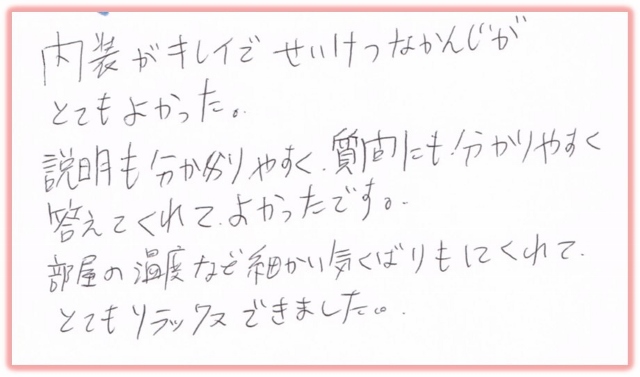 内装がキレイで せいけつなかんじが
とてもよかった。
説明も分かりやすく、質問にも分かりやすく
答えてくれて、よかったです。
部屋の温度など細かい気くばりもしてくれて、
とてもリラックスできました。